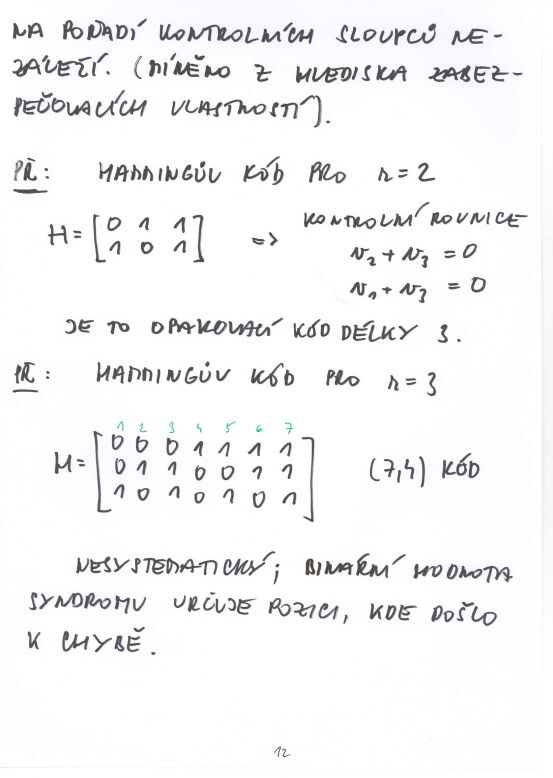 NA POŘADÍ KONTROLNÍCH SLOUPCŮ NE-
ZÁLEŽÍ. (MÍNĚNO Z HLEDISKA ZABEZ-
PEČOVACÍCH VLASTNOSTÍ).
PŘ: HAMMINGŮV KÓD PRO r = 2
H = [0 1 1 => KONTROLNÍ ROVNICE
1 0 1] v2 + v3 = 0
v1 + v3 = 0
JE TO OPAKOVACÍ KÓD DÉLKY 3.
PŘ: HAMMINGŮV KÓD PRO r = 3
1 2 3 4 5 6 7
H = [0 0 0 1 1 1 1
0 1 1 0 0 1 1 (7,4) KÓD
1 0 1 0 1 0 1]
NESYSTEMATICKÝ; BINÁRNÍ HODNOTA
SYNDROMU URČUJE POZICI, KDE DOŠLO
K CHYBĚ.
12